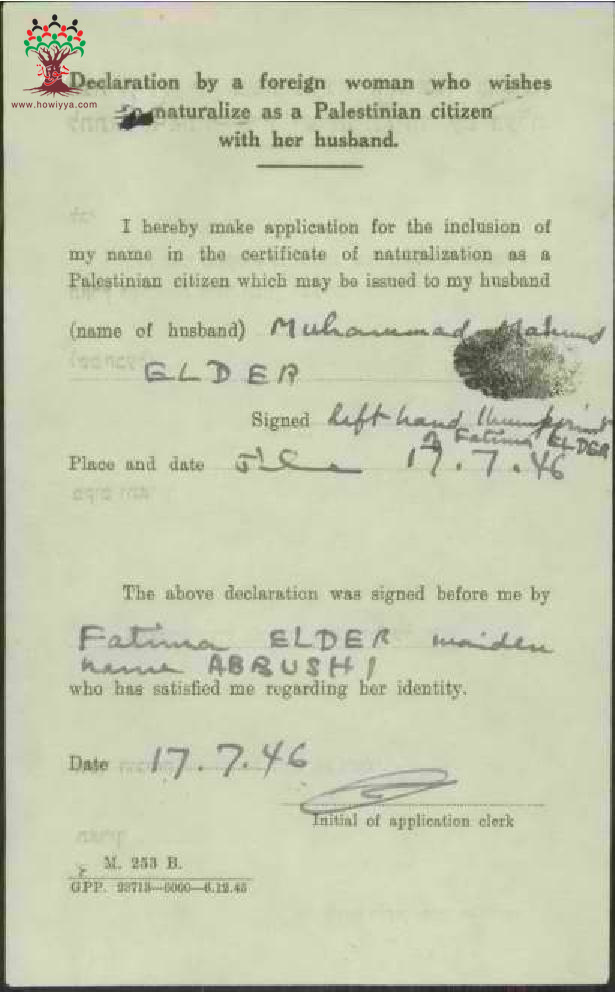 www.howiyya.com
Declaration by a foreign woman who wishes
to naturalize as a Palestinian citizen
with her husband.
I hereby make application for the inclusion of
my name in the certificate of naturalization as a
Palestinian citizen which may be issued to my husband
(name of husband) Muhammad Mahmud
ELDER
Signed left hand thumbprint
of Fatima ELDER
Place and date 17.7.46
The above declaration was signed before me by
Fatima ELDER maiden
name ABRUSHI
who has satisfied me regarding her identity.
Date 17.7.46
Initial of application clerk
M. 253 B.
GPP. 23713—5000—6.12.45